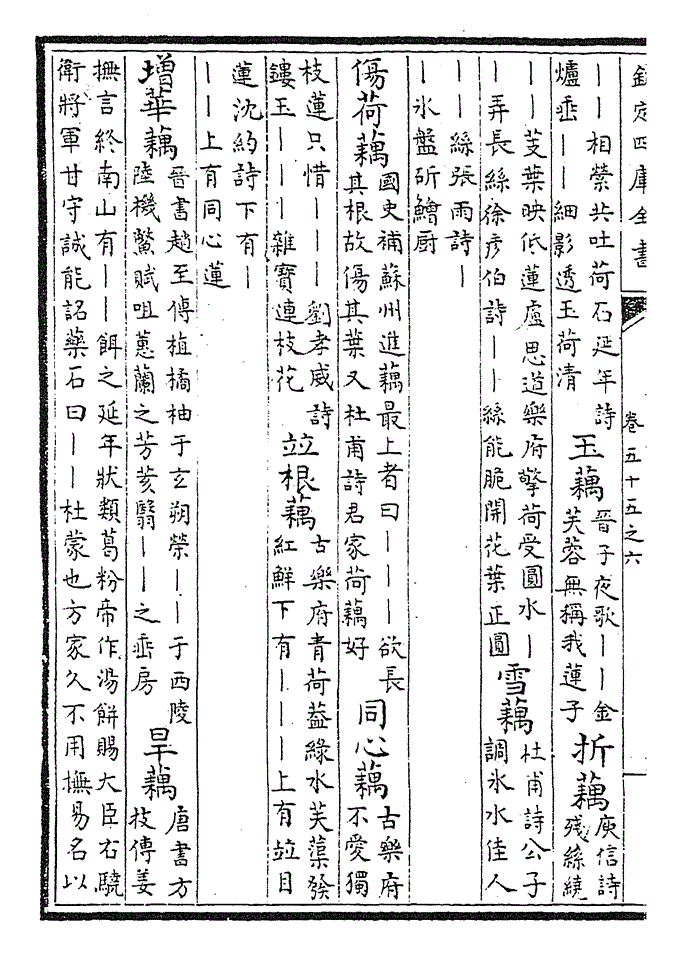 欽定四庫全書 卷五十五之六
｜｜相縈共吐荷石延年詩
爐垂｜｜細影透玉荷清
玉藕
晉子夜歌｜｜金
芙蓉無稱我蓮子
折藕
庾信詩
殘絲繞
｜｜芰葉映低蓮盧思道樂府擎荷受圓水｜
｜弄長絲徐彥伯詩｜｜絲能脆開花葉正圓
雪藕
杜甫詩公子
調氷水佳人
｜｜絲張雨詩｜
｜氷盤斫鱠厨
傷荷藕
國史補蘇州進藕最上者曰｜｜｜欲長
其根故傷其葉又杜甫詩君家荷藕好
同心藕
古樂府
不愛獨
枝蓮只惜｜｜｜劉孝威詩
鏤玉｜｜｜雜寶連枝花
竝根藕
古樂府青荷葢綠水芙蕖發
紅鮮下有｜｜｜上有竝目
蓮沈約詩下有｜
｜｜上有同心蓮
增華藕
晉書趙至傳植橘柚于玄朔榮｜｜于西陵
陸機鱉賦咀蕙蘭之芳荄翳｜｜之垂房
旱藕
唐書方
技傳姜
撫言終南山有｜｜餌之延年狀類葛粉帝作湯餅賜大臣右驍
衛將軍甘守誠能詺藥石曰｜｜杜蒙也方家久不用撫易名以